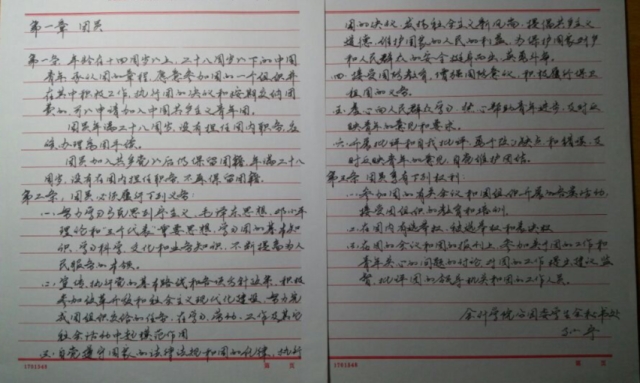 第一章 团员
第一条 年龄在十四周岁以上,二十八周岁以下的中国
青年,承认团的章程,愿意参加团的一个组织并
在其中积极工作、执行团的决议和按期交纳团
费的,可以申请加入中国共产主义青年团。
团员年满二十八周岁,没有担任团内职务,应
该办理离团手续。
团员加入共产党以后仍保留团籍,年满二十八
周岁,没有在团内担任职务,不再保留团籍。
第二条 团员必须履行下列义务:
㈠努力学习马克思列宁主义、毛泽东思想、邓小平
理论和“三个代表”重要思想,学习团的基本知
识,学习科学、文化和业务知识,不断提高为人
民服务的本领。
㈡宣传、执行党的基本路线和各项方针政策,积极
参加改革开放和社会主义现代化建设,努力完
成团组织交给的任务,在学习、劳动、工作及其它
社会活动中起模范作用
㈢自觉遵守国家的法律法规和团的纪律,执行
1701049
第 页
团的决议,发扬社会主义新风尚,提倡共产主义
道德,维护国家和人民的利益,为保护国家财产
和人民群众的安全挺身而出,英勇斗争。
四、接受国防教育,增强国防意识,积极履行保卫
祖国的义务。
五、虚心向人民群众学习,热心帮助青年进步,及时反
映青年的意见和要求。
六、开展批评和自我批评,勇于改正缺点和错误,
自觉维护团结。
第三条 团员享有下列权利:
㈠参加团的有关会议和团组织开展的各类活动,
接受团组织的教育和培训。
㈡在团内有选举权、被选举权和表决权
㈢在团的会议和团的报刊上,参加关于团的工作和
青年关心的问题的讨论,对团的工作提出建议,监
督、批评团的领导机关和团的工作人员。
1701049
第 页